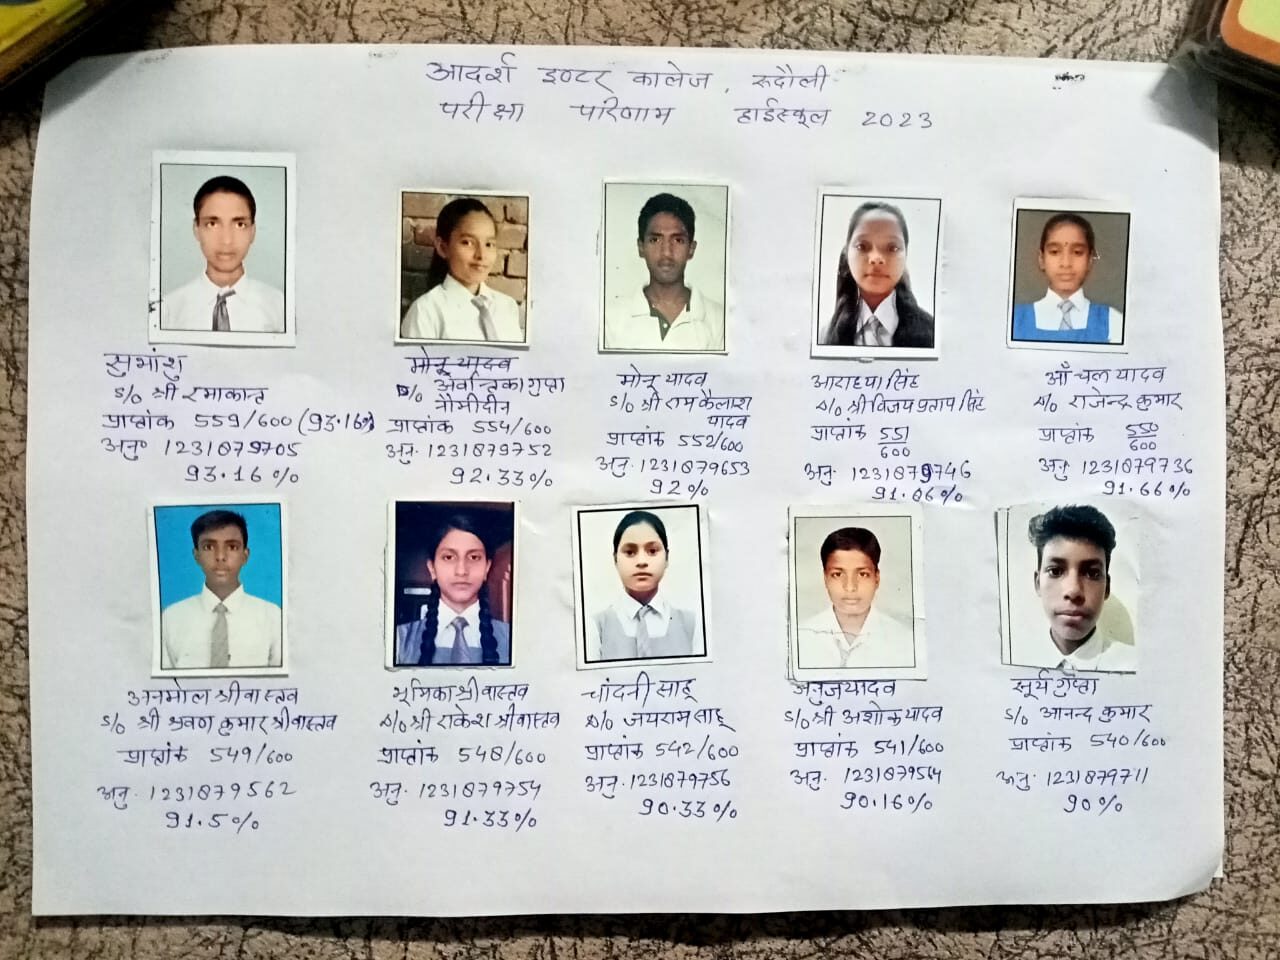 आदर्श इण्टर कालेज, रूदौली
परीक्षा परिणाम हाईस्कूल 2023
सुभांशु
S/o श्री रमाकान्त
प्राप्तांक 559/600 (93.16%)
अनु० 1231879705
93.16%
मोनू यादव
D/o अवन्तिका गुप्ता
नौमीदीन
प्राप्तांक 554/600
अनु. 1231879752
92.33%
मोनू यादव
S/o श्री राम कैलाश
यादव
प्राप्तांक 552/600
अनु. 1231879653
92%
आराध्या सिंह
D/o श्री विजय प्रताप सिंह
प्राप्तांक 551/600
अनु. 1231879746
91.86%
आँचल यादव
D/o राजेन्द्र कुमार
प्राप्तांक 550/600
अनु. 1231879736
91.66%
अनमोल श्रीवास्तव
S/o श्री श्रवण कुमार श्रीवास्तव
प्राप्तांक 549/600
अनु. 1231879562
91.5%
भूमिका श्रीवास्तव
D/o श्री राकेश श्रीवास्तव
प्राप्तांक 548/600
अनु. 1231879754
91.33%
चांदनी साहू
D/o जयराम साहू
प्राप्तांक 542/600
अनु. 1231879756
90.33%
अनुज यादव
S/o श्री अशोक यादव
प्राप्तांक 541/600
अनु. 1231879564
90.16%
सूर्य गुप्ता
S/o आनन्द कुमार
प्राप्तांक 540/600
अनु. 1231879711
90%